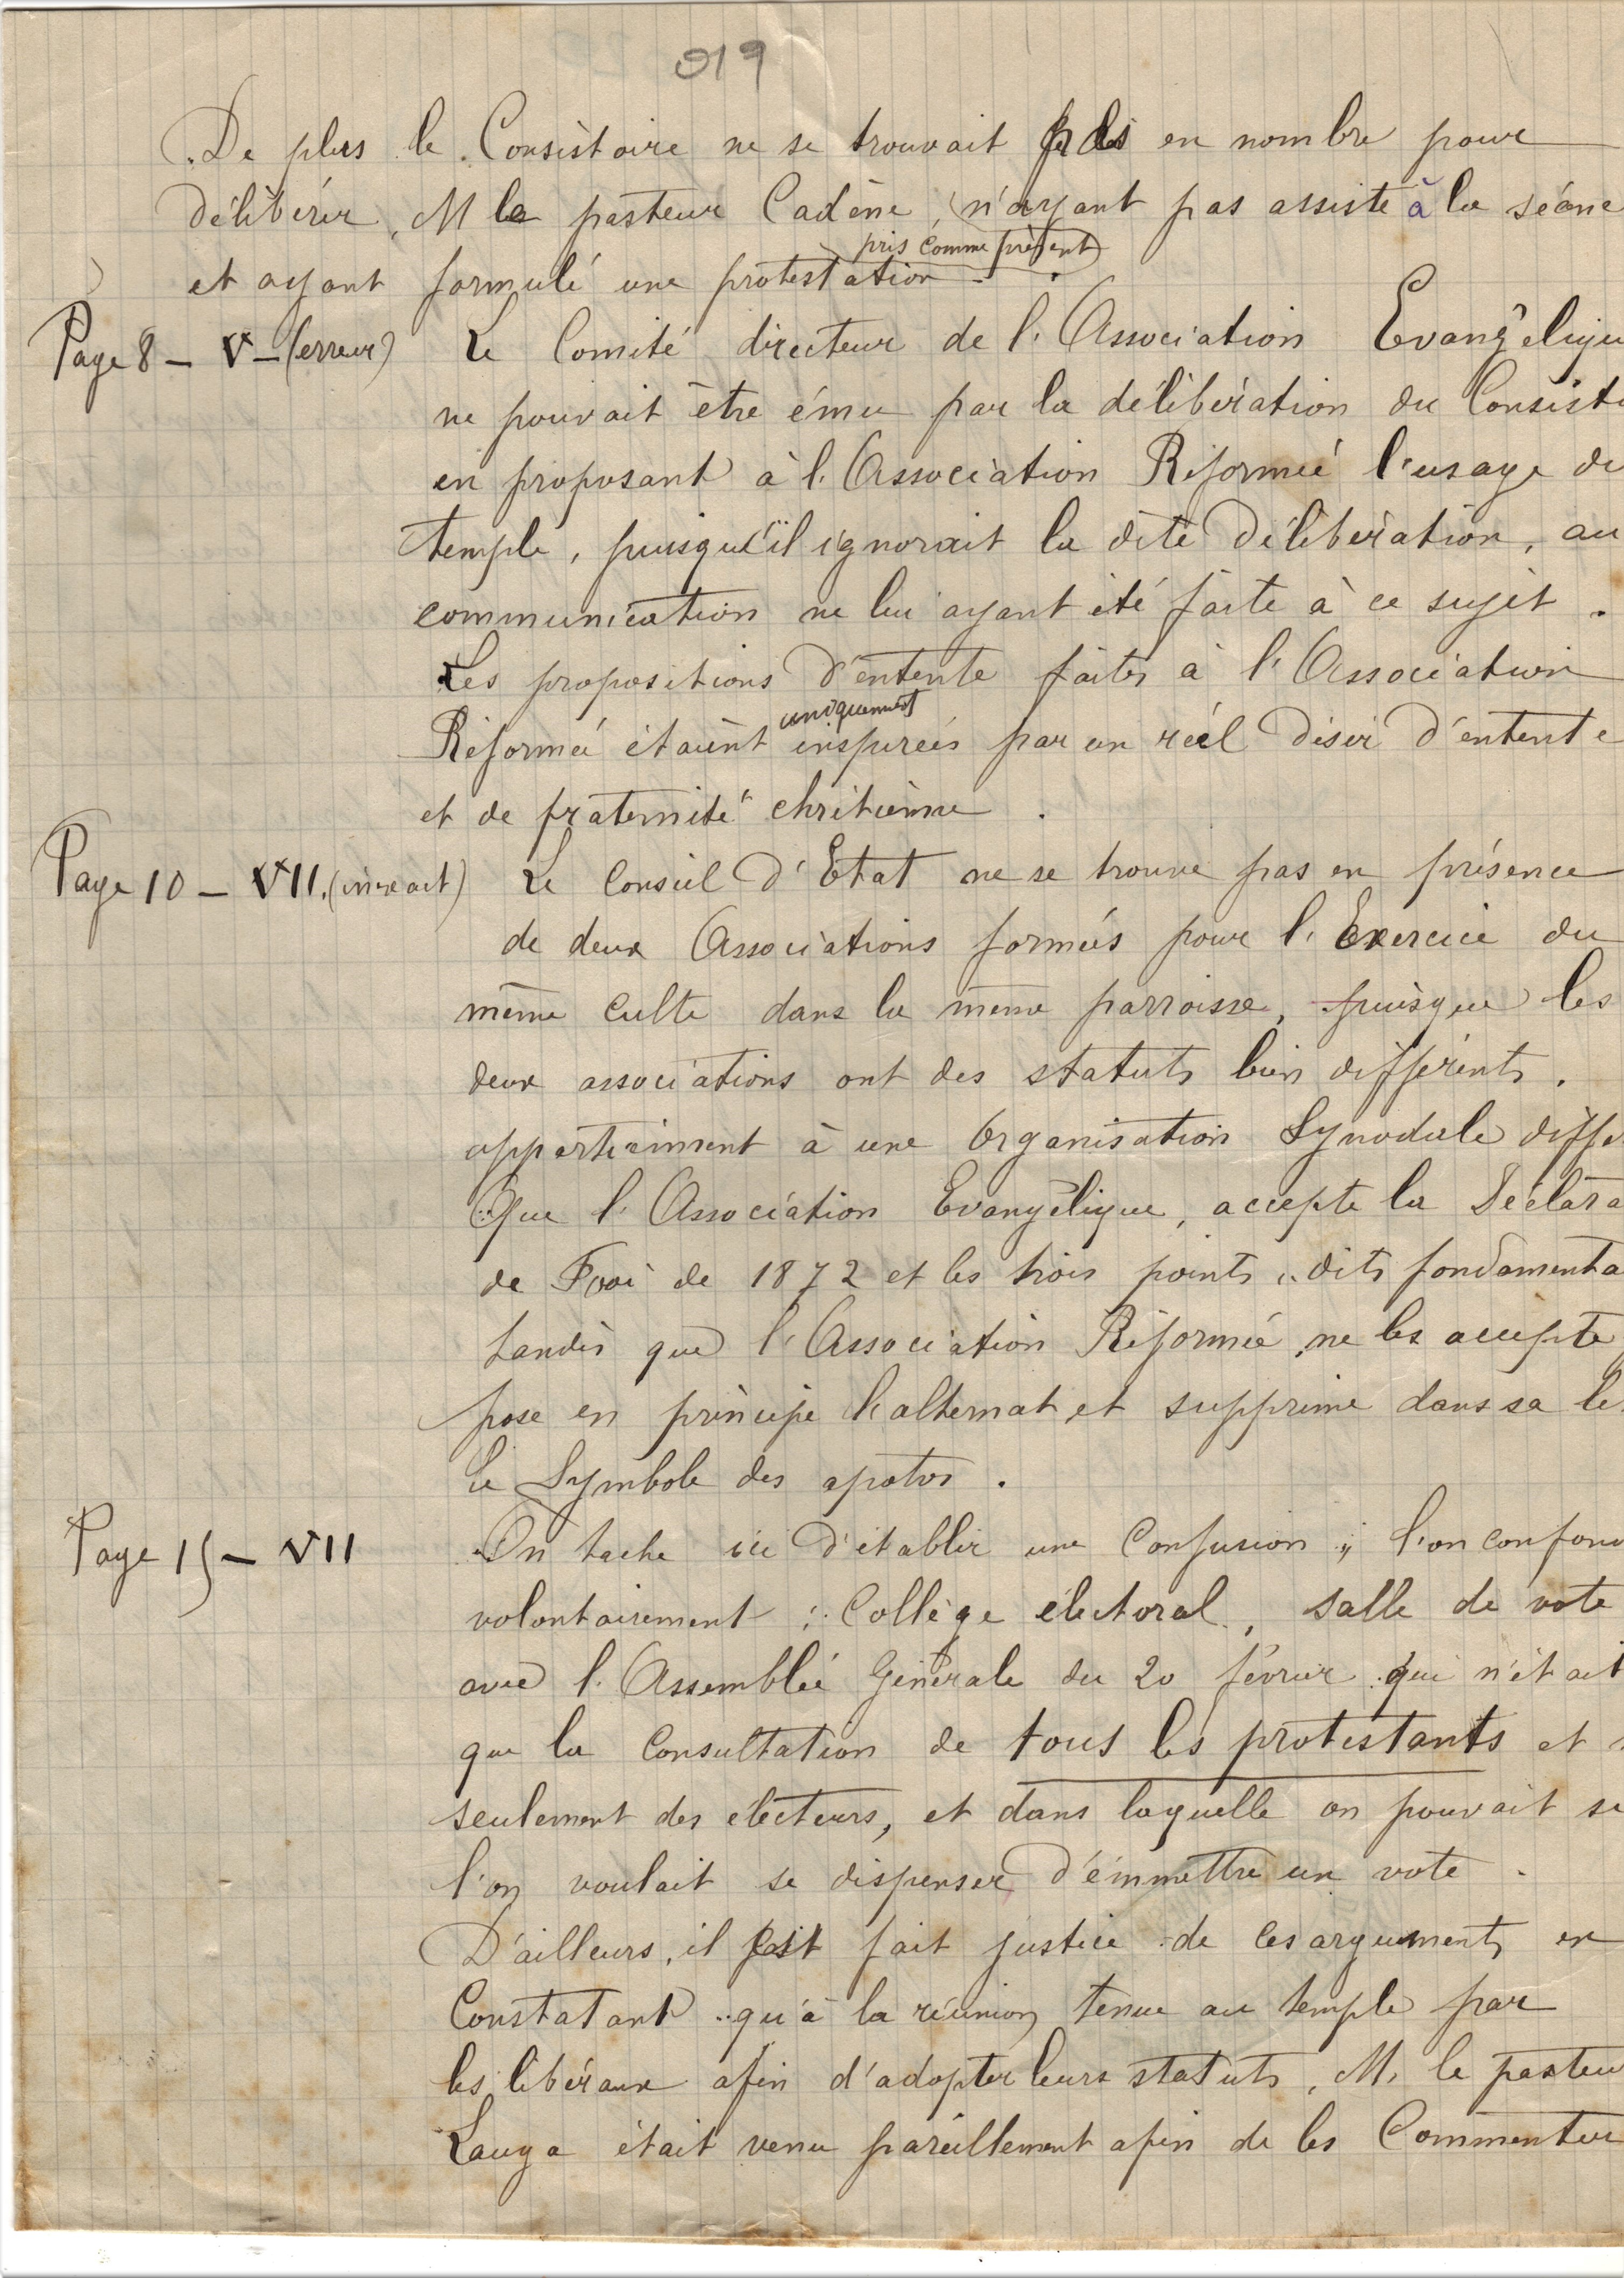 019
De plus le Consistoire ne se trouvait pas en nombre pour
délibérer, M le pasteur Cadène, n'ayant pas assisté à la séanc
pris comme présent
et ayant formulé une protestation.
Page 8 — V — (erreur) Le Comité directeur de l'Association Evangéliqu
ne pouvait être ému par la délibération du Consisto
en proposant à l'Association Réformée l'usage du
temple, puisqu'il ignorait la dite délibération, au
communication ne lui ayant été faite à ce sujet.
Les propositions d'entente faites à l'Association
uniquement
Réformée étaient inspirées par un réel désir d'entente
et de fraternité chrétienne.
Page 10 — VII. (inexact) Le Conseil d'Etat ne se trouve pas en présence
de deux Associations formées pour l'Exercice du
même culte dans la même parroisse, puisque les
deux associations ont des statuts bien différents.
appartiennent à une Organisation Synodale diffé
Que l'Association Evangélique, accepte la Déclara
de Foi de 1872 et les trois points dits fondamenta
tandis que l'Association Réformée, ne les accepte
pose en principe l'alternat et supprime dans sa
le Symbole des apotres.
Page 15 — VII On tache ici d'établir une Confusion ; l'on confond
volontairement : Collège électoral, salle de vote
avec l'Assemblée Générale du 20 février qui n'était
que la Consultation de tous les protestants et
seulement des électeurs, et dans laquelle on pouvait si
l'on voulait se dispenser d'émmettre un vote.
D'ailleurs, il est fait justice de ces arguments en
Constatant qu'à la réunion tenue au temple par
les libéraux afin d'adopter leurs statuts, M. le pasteu
Lauga était venu pareillement afin de les Commenter